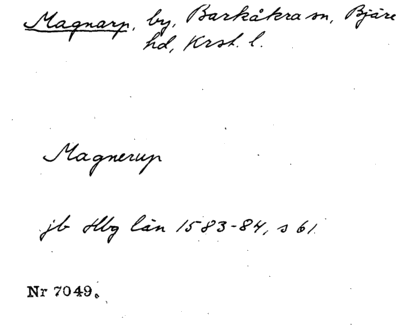 Magnarp, by, Barkåkra sn, Bjäre
hd, Krst. l.
Magnerup
jb Hbg län 1583-84, s 61
Nr 7049.